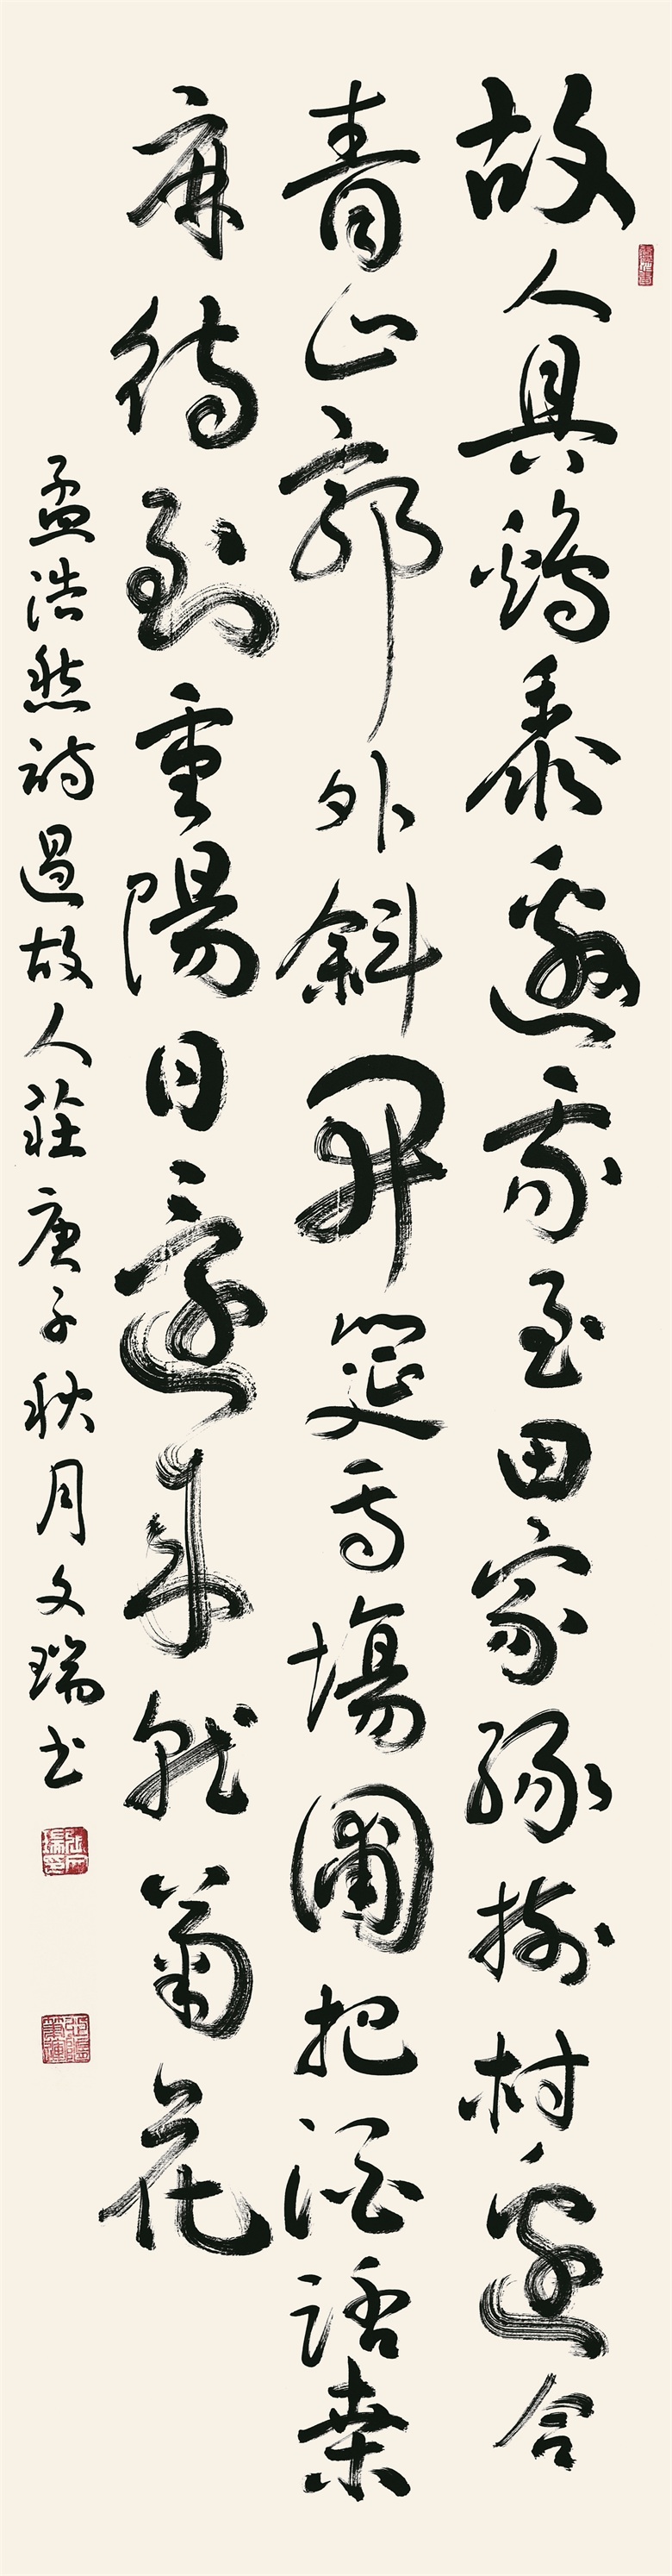 故人具鷄黍邀我至田家緑樹村邊合
青山郭外斜開筵面場圃把酒話桑
麻待到重陽日還来就菊花
孟浩然詩過故人莊庚子秋月文瑞书